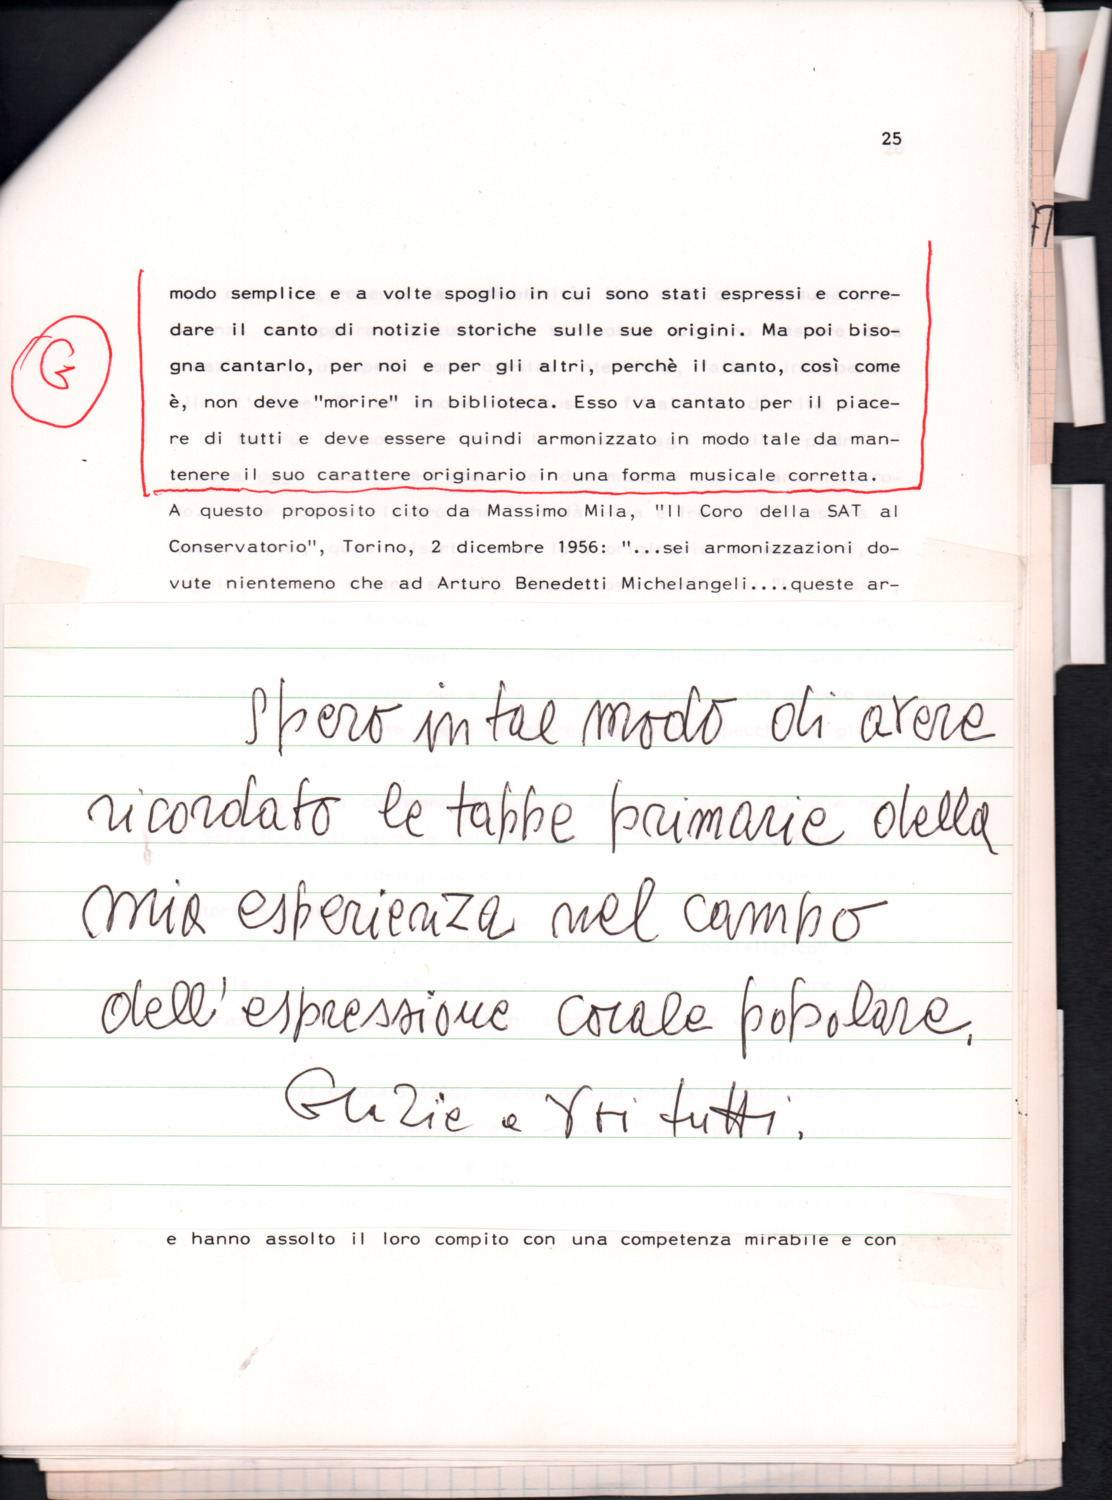 25
modo semplice e a volte spoglio in cui sono stati espressi e corre-
dare il canto di notizie storiche sulle sue origini. Ma poi biso-
gna cantarlo, per noi e per gli altri, perchè il canto, così come
è, non deve "morire" in biblioteca. Esso va cantato per il piace-
re di tutti e deve essere quindi armonizzato in modo tale da man-
tenere il suo carattere originario in una forma musicale corretta.
A questo proposito cito da Massimo Mila, "Il Coro della SAT al
Conservatorio", Torino, 2 dicembre 1956: "...sei armonizzazioni do-
vute nientemeno che ad Arturo Benedetti Michelangeli....queste ar-
Spero in tal modo di avere
ricordato le tappe primarie della
mia esperienza nel campo
dell'espressione corale popolare.
Grazie a Voi tutti.
e hanno assolto il loro compito con una competenza mirabile e con